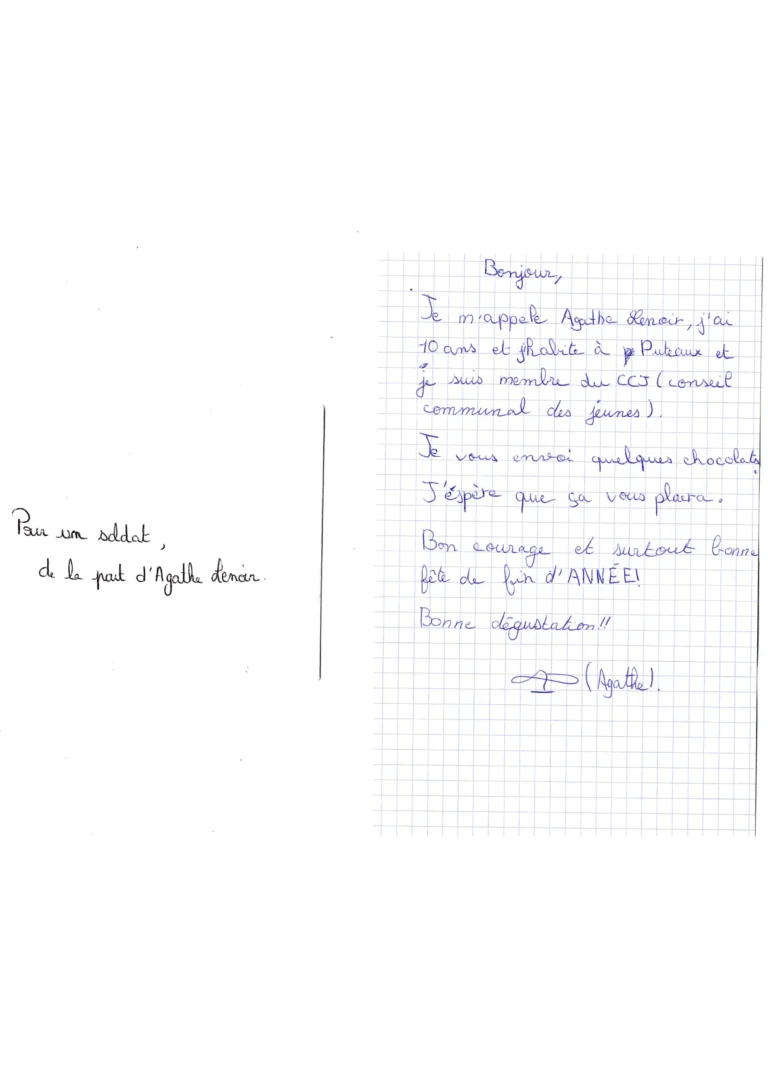 Pour un soldat,
de la part d'Agathe Lenoir.
Bonjour,
Je m'appele Agathe Lenoir, j'ai
10 ans et j'habite à Puteaux et
je suis membre du CCJ (conseil
communal des jeunes).
Je vous envoi quelques chocolats
J'éspère que ça vous plaira.
Bon courage et surtout bonne
fête de fin d'ANNÉE!
Bonne dégustation!!
(Agathe).